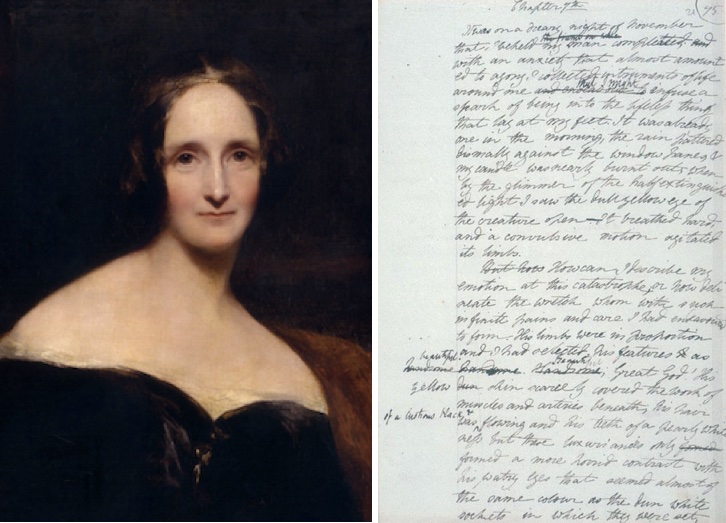 Chapter 7th
It was on a dreary night of November
the frame on whic
that I beheld my man compleated and
with an anxiety that almost amount
ed to agony I collected instruments of life
that I might
around me and infuse a
spark of being into the lifeless thing
that lay at my feet. It was already
one in the morning, the rain pattered
dismally against the window panes, &
my candle was nearly burnt out, when
by the glimmer of the half extinguish
ed light I saw the dull yellow eye of
the creature open – It breathed hard,
and a convulsive motion agitated
its limbs.
But how How can I describe my
emotion at this catastrophe, or how deli
neate the wretch whom with such
infinite pains and care I had endeavour
to form. His limbs were in proportion
beautiful.
and I had selected his features as
handsome handsome. Handsome; Great God! His
yellow dun skin scarcely covered the work of
muscles and arteries beneath; his hair
of a lustrous black &
was flowing and his teeth of a pearly white
ness but these luxuriances only
formed a more horrid contrast with
his watry eyes that seemed almost of
the same colour as the dun white
sockets in which they were set,